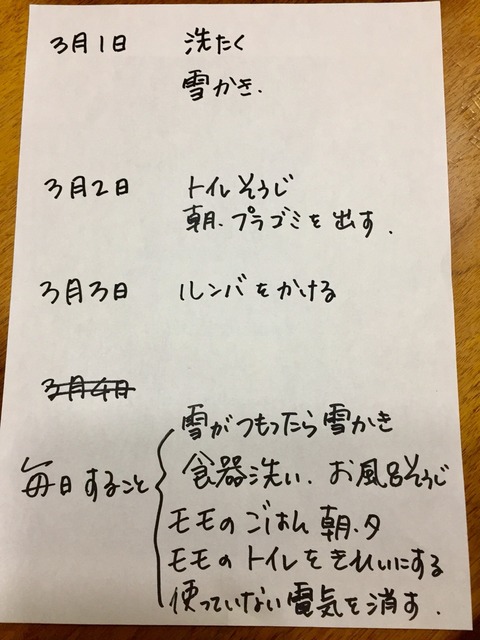 3月1日 洗たく
雪かき.
3月2日 トイレそうじ
朝.プラゴミを出す.
3月3日 ルンバをかける
3月4日
雪がつもったら雪かき
毎日すること 食器洗い.お風呂そうじ
モモのごはん朝.夕
モモのトイレをきれいにする
使っていない電気を消す.